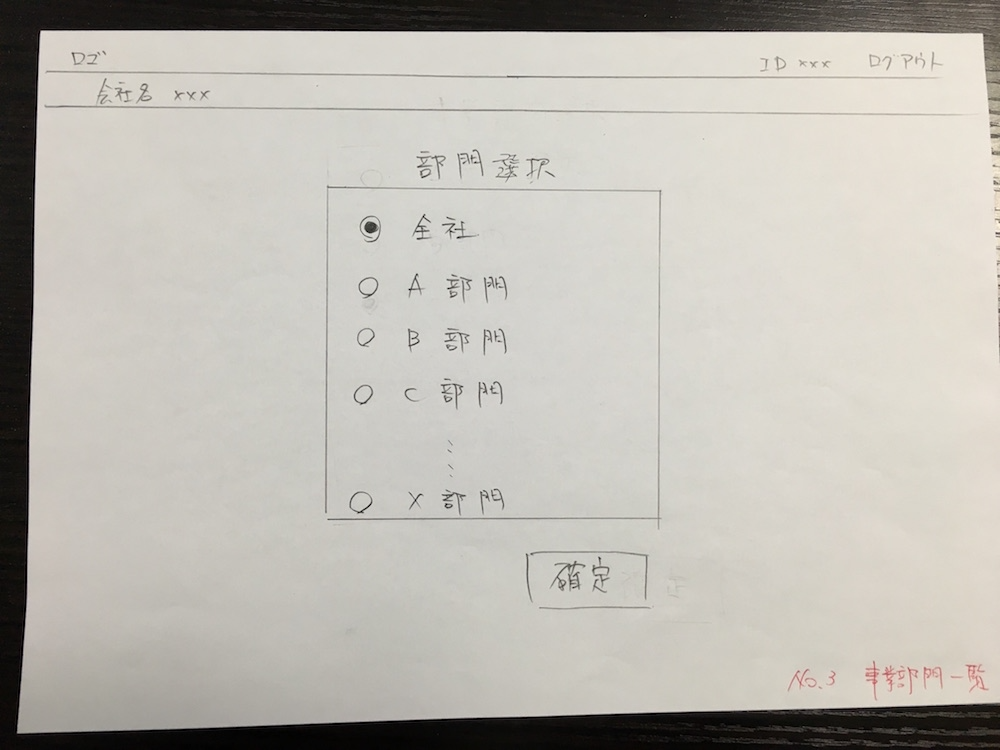 ロゴ ID xxx ログアウト
会社名 xxx
部門選択
全社
A 部門
B 部門
C 部門
⋮
X 部門
確定
No.3 事業部門一覧